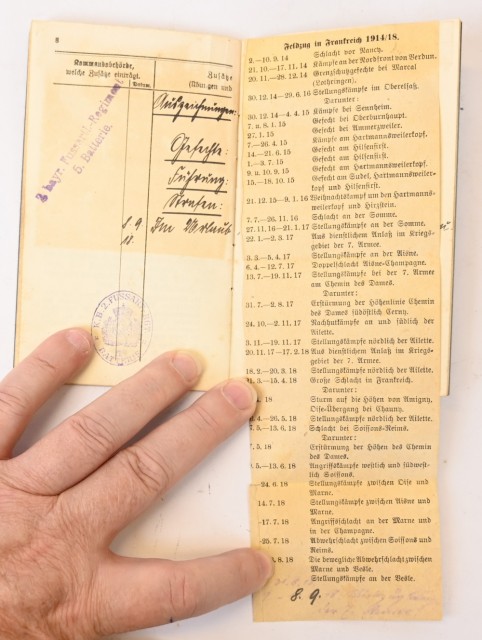 8
Kommandobehörde,
welche Zusätze einträgt.
Datum.
Zusätze
(Übungen und
2 bayr. Fussart.-Regiment
5. Batterie.
Auszeichnungen:
Gefechte:
Führung:
Strafen:
8. 9.
18.
Im Urlaub
Feldzug in Frankreich 1914/18.
2.—10. 9. 14 Schlacht vor Nancy.
21. 10.—17. 11. 14 Kämpfe an der Nordfront von Verdun.
20. 11.—29. 12. 14 Grenzschutzgefechte bei Marcal
(Lothringen).
30. 12. 14—29. 6. 16 Stellungskämpfe im Oberelsaß.
Darunter:
30. 12. 14—4. 4. 15 Kämpfe bei Sennheim.
7. u. 8. 1. 15 Gefecht bei Oberburnhaupt.
27. 1. 15 Gefecht bei Ammerzweiler.
7.—26. 4. 15 Kämpfe am Hartmannsweilerkopf.
14.—21. 6. 15 Gefecht am Hilsenfirst.
1.—3. 7. 15 Gefecht am Hilsenfirst.
9. u. 10. 9. 15 Gefecht am Hartmannsweilerkopf.
15.—18. 10. 15 Gefecht am Sudel, Hartmannsweiler-
kopf und Hilsenfirst.
21. 12. 15—9. 1. 16 Weihnachtskampf um den Hartmanns-
weilerkopf und Hirzstein.
7. 7.—26. 11. 16 Schlacht an der Somme.
27. 11. 16—21. 1. 17 Stellungskämpfe an der Somme.
22. 1.—2. 3. 17 Aus dienstlichem Anlaß im Kriegs-
gebiet der 7. Armee.
3. 3.—5. 4. 17 Stellungskämpfe an der Aisne.
6. 4.—12. 7. 17 Doppelschlacht Aisne-Champagne.
13. 7.—19. 11. 17 Stellungskämpfe bei der 7. Armee
am Chemin des Dames.
Darunter:
31. 7.—2. 8. 17 Erstürmung der Höhenlinie Chemin
des Dames südöstlich Cerny.
24. 10.—2. 11. 17 Nachhutkämpfe an und südlich der
Ailette.
3. 11.—19. 11. 17 Stellungskämpfe nördlich der Ailette.
20. 11. 17—17. 2. 18 Aus dienstlichem Anlaß im Kriegs-
gebiet der 7. Armee.
18. 2.—20. 3. 18 Stellungskämpfe nördlich der Ailette.
1. 3.—15. 4. 18 Große Schlacht in Frankreich.
Darunter:
18 Sturm auf die Höhen von Amigny,
Oise-Übergang bei Chauny.
4.—26. 5. 18 Stellungskämpfe nördlich der Ailette.
5.—13. 6. 18 Schlacht bei Soissons-Reims.
Darunter:
5. 18 Erstürmung der Höhen des Chemin
des Dames.
5.—13. 6. 18 Angriffskämpfe westlich und südwest-
lich Soissons.
—24. 6. 18 Stellungskämpfe zwischen Oise und
Marne.
14. 7. 18 Stellungskämpfe zwischen Aisne und
Marne.
—17. 7. 18 Angriffsschlacht an der Marne und
in der Champagne.
—25. 7. 18 Abwehrschlacht zwischen Soissons und
Reims.
8. 18 Die bewegliche Abwehrschlacht zwischen
Marne und Vesle.
Stellungskämpfe an der Vesle.
8. 9.